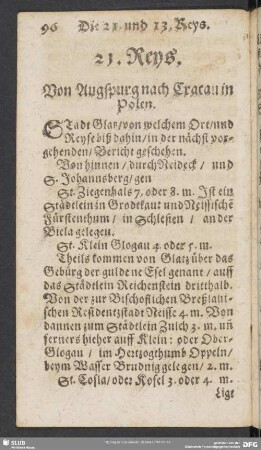 96 Die 21. und 13. Reys.
21. Reys.
Von Augspurg nach Cracau in
Polen.
STadt Glatz/von welchem Ort/und
Reyse biß dahin/in der nächst vor-
gehenden/Bericht geschehen.
Von hinnen/durch Neideck/ und
S. Johannsberg/gen
St. Ziegenhals 7. oder 8. m. Ist ein
Städtlein in Grodtkau und Neissische
Fürstenthum/ in Schlesien / an der
Biela gelegen.
St. Klein Glogau 4. oder 5. m.
Theils kommen von Glatz über das
Gebürg der guldene Esel genant/ auff
das Städtlein Reichenstein dritthalb.
Von der zur Bischoflichen Breßlaui-
schen Residentzstadt Neisse 4. m. Von
dannen zum Städtlein Zulch 3. m. uñ
ferners hieher auff Klein: oder Ober-
Glogau / im Hertzogthumb Oppeln/
beym Wasser Brudnig gelegen/ 2. m.
St. Cosla/oder Kosel 3. oder 4. m.
Ligt
SLUB